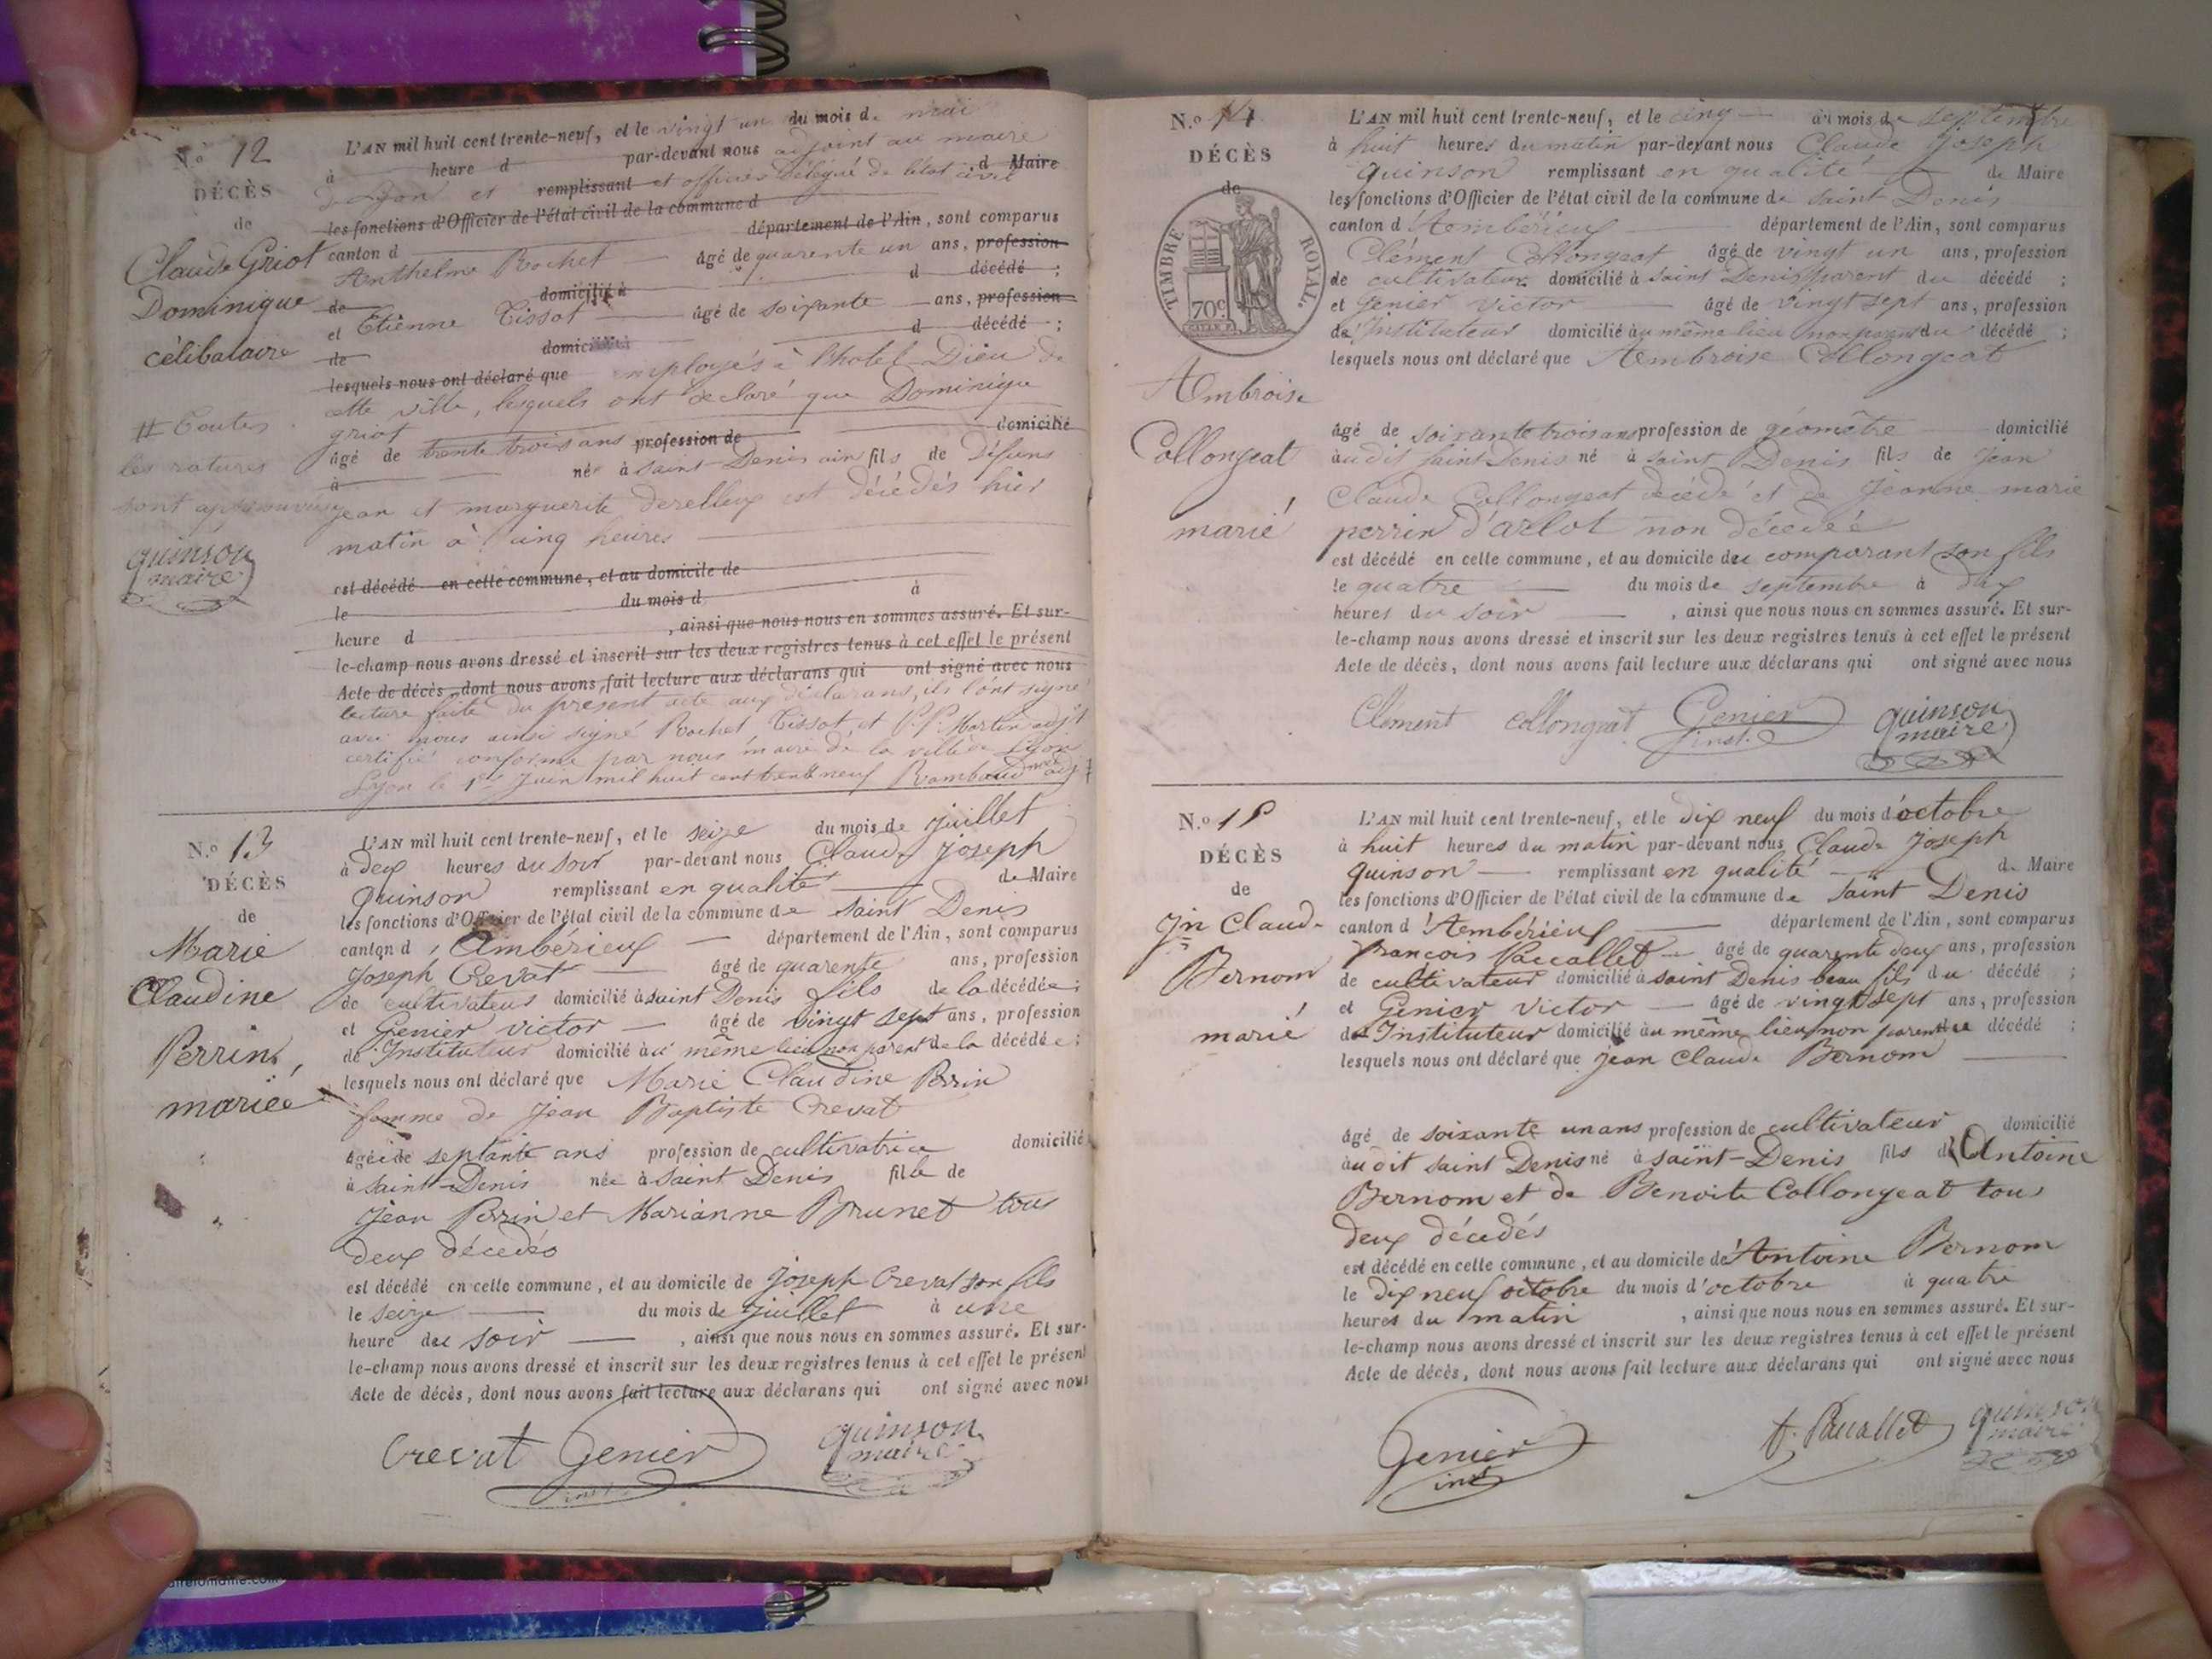 N.º 12
DÉCÈS
de
Claude Griot
Dominique
célibataire
# Toutes
les ratures
sont approuvées
quinson
maire
L'AN mil huit cent trente-neuf, et le vingt un du mois d. mai
à heure d par-devant nous adjoint au maire
de Lyon et remplissant et officier délégué de l'état civil d Maire
les fonctions d'Officier de l'état civil de la commune d
canton d département de l'Ain, sont comparus
Anthelme Rochet âgé de quarente un ans, profession
de domicilié à d décédé ;
et Etienne Tissot âgé de soixante ans, profession
de domicilié à d décédé ;
lesquels nous ont déclaré que employés à l'hotel-Dieu de
cette ville, lesquels ont déclaré que Dominique
griot
âgé de trente trois ans profession de domicilié
à né à saint-Denis ain fils de Défuns
jean et marguerite derelleux est décédés hier
matin à cinq heures
est décédé en cette commune, et au domicile de
le du mois d à
heure d , ainsi que nous nous en sommes assuré. Et sur-
le-champ nous avons dressé et inscrit sur les deux registres tenus à cet effet le présent
Acte de décès, dont nous avons fait lecture aux déclarans qui ont signé avec nous
lecture faite du présent acte aux déclarans, ils l'ont signé
avec nous ainsi signé Rochet Tissot et P.P. Martin adjt
certifié conforme par nous maire de la ville de Lyon
Lyon le 1er Juin mil huit cent trente neuf Rambaud adjt
N.º 13
DÉCÈS
de
Marie
Claudine
Perrin,
mariée
L'AN mil huit cent trente-neuf, et le seize du mois de juillet
à deux heures du soir par-devant nous Claude Joseph
Quinson remplissant en qualité de Maire
les fonctions d'Officier de l'état civil de la commune de saint Denis
canton d'Ambérieux département de l'Ain, sont comparus
Joseph Crevat âgé de quarente ans, profession
de cultivateur domicilié à saint Denis fils de la décédée ;
et Genier victor âgé de vingt sept ans, profession
de Instituteur domicilié au même lieu non parent de la décédée ;
lesquels nous ont déclaré que Marie Claudine Perrin
femme de Jean Baptiste Crevat
âgée de septante ans profession de cultivatrice domicilié
à saint-Denis née à saint Denis fille de
Jean Perrin et Marianne Brunet tous
deux décedés
est décédé en cette commune, et au domicile de Joseph Crevat son fils
le seize du mois de juillet à une
heure du soir , ainsi que nous nous en sommes assuré. Et sur-
le-champ nous avons dressé et inscrit sur les deux registres tenus à cet effet le présent
Acte de décès, dont nous avons fait lecture aux déclarans qui ont signé avec nous
Crevat Genier
inst.
quinson
maire
N.º 14
DÉCÈS
de
TIMBRE ROYAL.
70c
Ambroise
Collongeat
marié
L'AN mil huit cent trente-neuf, et le cinq du mois de septembre
à huit heures du matin par-devant nous Claude Joseph
Quinson remplissant en qualité de Maire
les fonctions d'Officier de l'état civil de la commune de saint Denis
canton d'Ambérieux département de l'Ain, sont comparus
Clément Collongeat âgé de vingt un ans, profession
de cultivateur domicilié à saint Denis parent du décédé ;
et Genier victor âgé de vingt sept ans, profession
de Instituteur domicilié au même lieu non parent du décédé ;
lesquels nous ont déclaré que Ambroise Collongeat
âgé de soixante trois ans profession de géomètre domicilié
au dit saint Denis né à saint Denis fils de Jean
Claude Collongeat décédé et de Jeanne marie
perrin d'arlot non décedée
est décédé en cette commune, et au domicile du comparant son fils
le quatre du mois de septembre à dix
heures du soir , ainsi que nous nous en sommes assuré. Et sur-
le-champ nous avons dressé et inscrit sur les deux registres tenus à cet effet le présent
Acte de décès, dont nous avons fait lecture aux déclarans qui ont signé avec nous
Clément collongeat Genier
inst.
quinson
maire
N.º 15
DÉCÈS
de
Jn Claude
Bernom
marié
L'AN mil huit cent trente-neuf, et le dix neuf du mois d'octobre
à huit heures du matin par-devant nous Claude Joseph
Quinson remplissant en qualité de Maire
les fonctions d'Officier de l'état civil de la commune de saint Denis
canton d'Ambérieux département de l'Ain, sont comparus
françois Paccallet âgé de quarente deux ans, profession
de cultivateur domicilié à saint Denis beau fils du décédé ;
et Genier Victor âgé de vingt sept ans, profession
de Instituteur domicilié au même lieu non parent du décédé ;
lesquels nous ont déclaré que jean Claude Bernom
âgé de soixante un ans profession de cultivateur domicilié
au dit saint Denis né à saint-Denis fils d'Antoine
Bernom et de Benoite Collongeat tous
deux décedés
est décédé en cette commune, et au domicile de Antoine Bernom
le dix neuf octobre du mois d'octobre à quatre
heures du matin , ainsi que nous nous en sommes assuré. Et sur-
le-champ nous avons dressé et inscrit sur les deux registres tenus à cet effet le présent
Acte de décès, dont nous avons fait lecture aux déclarans qui ont signé avec nous
Genier
inst
f. Paccallet
quinson
maire